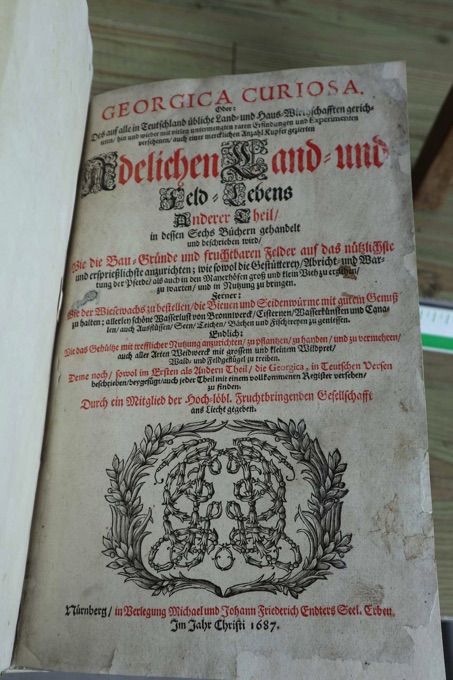 GEORGICA CURIOSA.
Oder:
Des auf alle in Teutschland übliche Land- und Haus-Wirthschafften gerich-
teten/ hin und wieder mit vielen untermengten raren Erfindungen und Experimenten
versehenen/ auch einer mercklichen Anzahl Kupfer gezierten
Adelichen Land- und
Feld-Lebens
Anderer Theil/
in dessen Sechs Büchern gehandelt
und beschrieben wird/
Wie die Bau-Gründe und fruchtbaren Felder auf das nützlichste
und ersprießlichste anzurichten; wie sowol die Gestüttereyen/ Abricht- und War-
tung der Pferde/ als auch in den Mayerhöfen groß und klein Vieh zu erziehen/
zu warten/ und in Nutzung zu bringen.
Ferner:
Wie der Wieswachs zu bestellen/ die Bienen und Seidenwürme mit gutem Genuß
zu halten; allerley schöne Wasserlust von Bronnwerck/ Cisternen/ Wasserkünsten und Cana-
len/ auch Ausflüssen/ Seen/ Teichen/ Bächen und Fischereyen zu geniessen.
Endlich:
Wie das Gehültze mit trefflicher Nutzung anzurichten/ zu pflantzen/ zu handen/ und zu vermehren/
auch aller Arten Weidwerck mit grossem und kleinem Wildpret/
Wald- und Feldgeflügel zu treiben.
Deme noch/ sowol im Ersten als Andern Theil/ die Georgica, in Teutschen Versen
beschrieben/ beygefügt/ auch jeder Theil mit einem vollkommenen Register versehen/
zu finden.
Durch ein Mitglied der Hoch-löbl. Fruchtbringenden Gesellschafft
ans Liecht gegeben.
Nürnberg/ in Verlegung Michael und Johann Friederich Endters Seel. Erben.
Im Jahr Christi 1687.